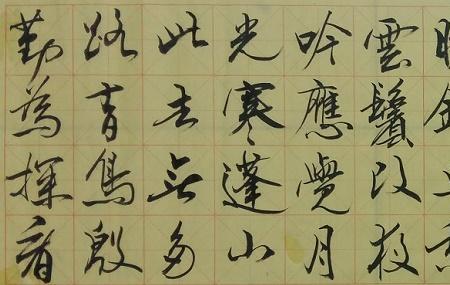 雲鬢改夜
吟應覺月
光寒蓬山
此去無多
路青鳥殷
勤為探看